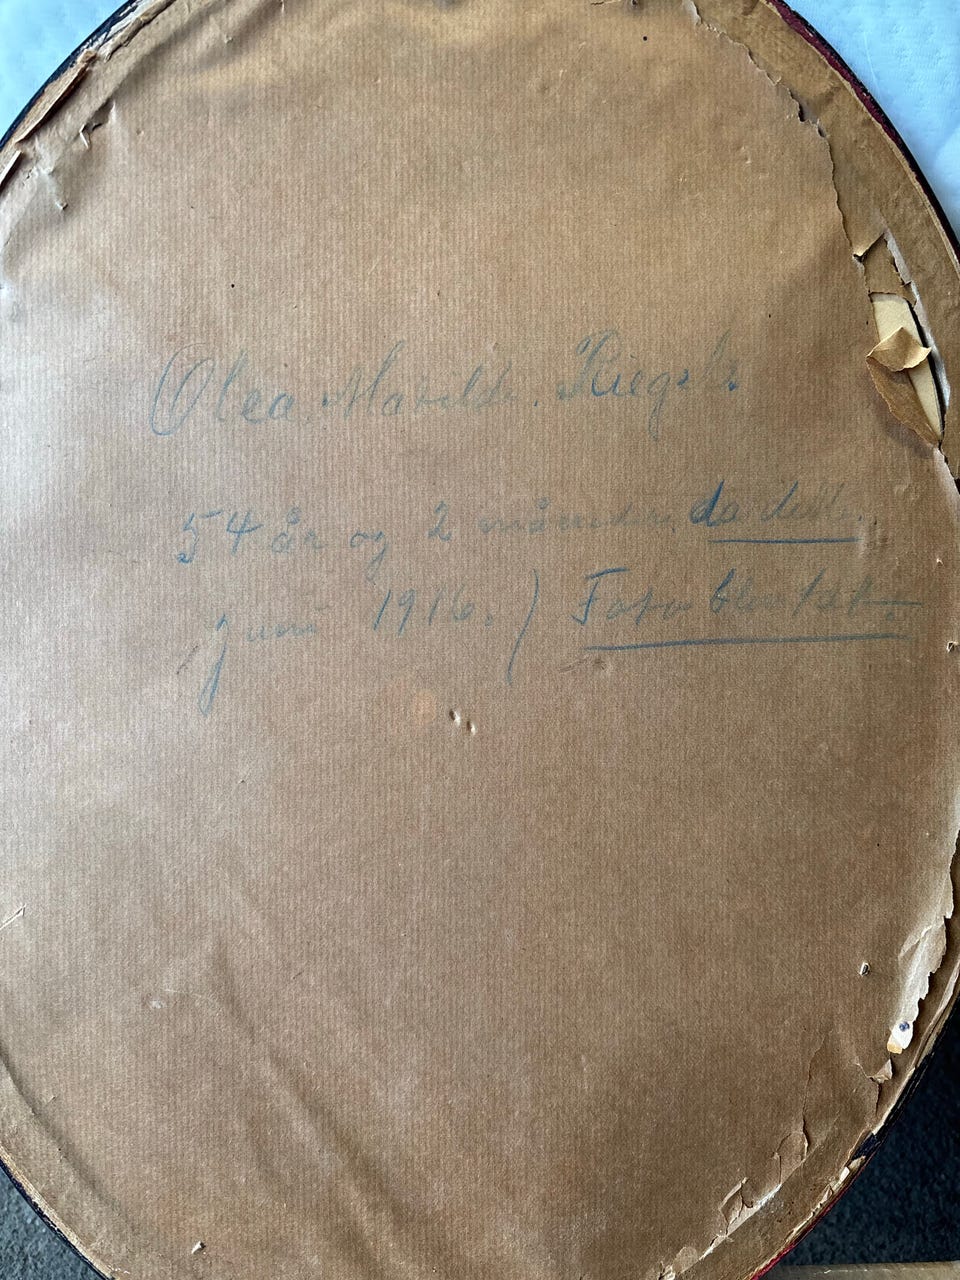 Olea Matilde Riegels
54 år og 2 måneder, da dette
Juni 1916.) Foto blev tat.